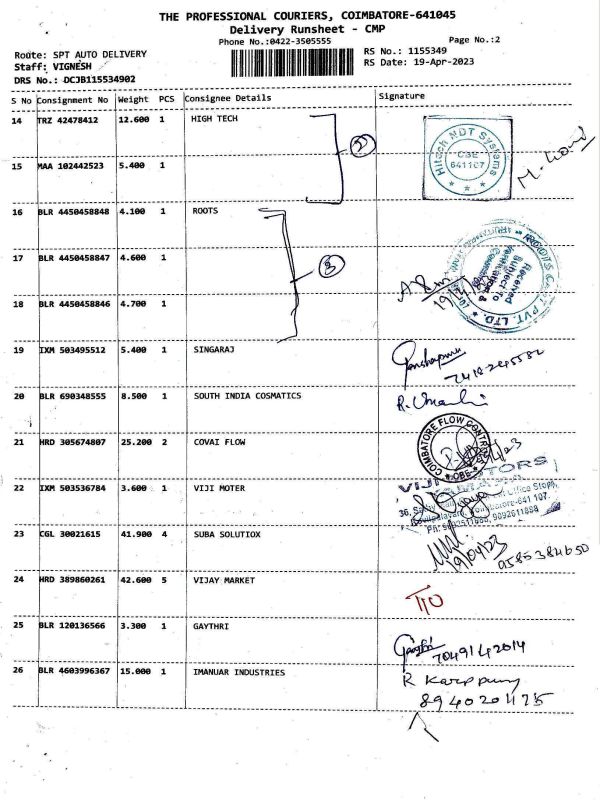 THE PROFESSIONAL COURIERS, COIMBATORE-641045
Delivery Runsheet - CMP
Phone No.:0422-3505555
Page No.:2
Route: SPT AUTO DELIVERY
RS No.: 1155349
Staff: VIGNESH
RS Date: 19-Apr-2023
DRS No.: DCJB115534902
S No Consignment No Weight PCS Consignee Details Signature
14 TRZ 42478412 12.600 1 HIGH TECH
2
Hitech NDT Systems
CBE
641107
15 MAA 102442523 5.400 1
16 BLR 4450458848 4.100 1 ROOTS
17 BLR 4450458847 4.600 1
3
Received
Subject to
PVT. LTD.
18 BLR 4450458846 4.700 1
19 IXM 503495512 5.400 1 SINGARAJ
20 BLR 690348555 8.500 1 SOUTH INDIA COSMATICS
21 HRD 305674807 25.200 2 COVAI FLOW
COIMBATORE FLOW
22 IXM 503536784 3.600 1 VIJI MOTER
23 CGL 30021615 41.900 4 SUBA SOLUTIOX
19/04/23
24 HRD 389860261 42.600 5 VIJAY MARKET
25 BLR 120136566 3.300 1 GAYTHRI
7049142014
26 BLR 4603996367 15.000 1 IMANUAR INDUSTRIES